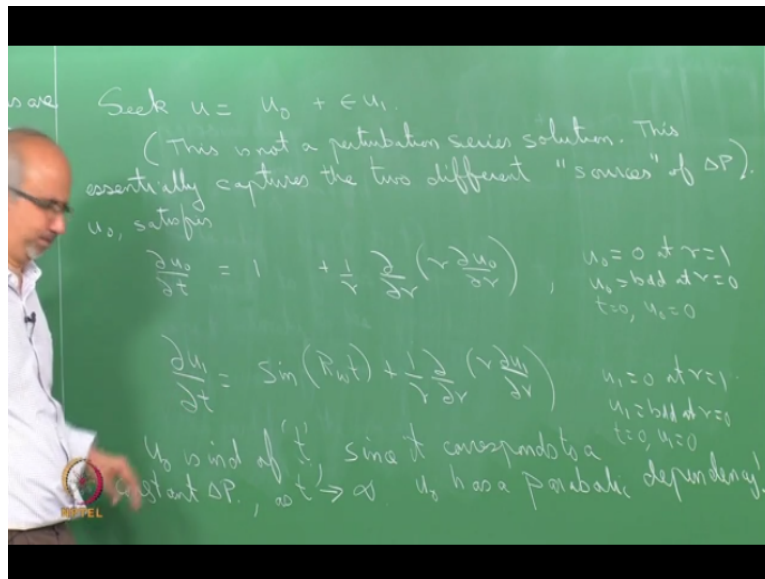 Seek u = u₀ + ϵu₁.
(This is not a perturbation series solution. This
essentially captures the two different "sources" of ΔP).
u₀, satisfies
∂u₀/∂t = 1 + 1/r ∂/∂r (r ∂u₀/∂r) , u₀ = 0 at r=1
u₀ = bdd at r=0
t=0, u₀=0
∂u₁/∂t = sin(Rωt) + 1/r ∂/∂r (r ∂u₁/∂r) u₁ = 0 at r=1.
u₁ = bdd at r=0
t=0, u₁=0
u₀ is ind of 't', since it corresponds to a
constant ΔP., as 't' → ∞ u₀ has a parabolic dependency.
NPTEL